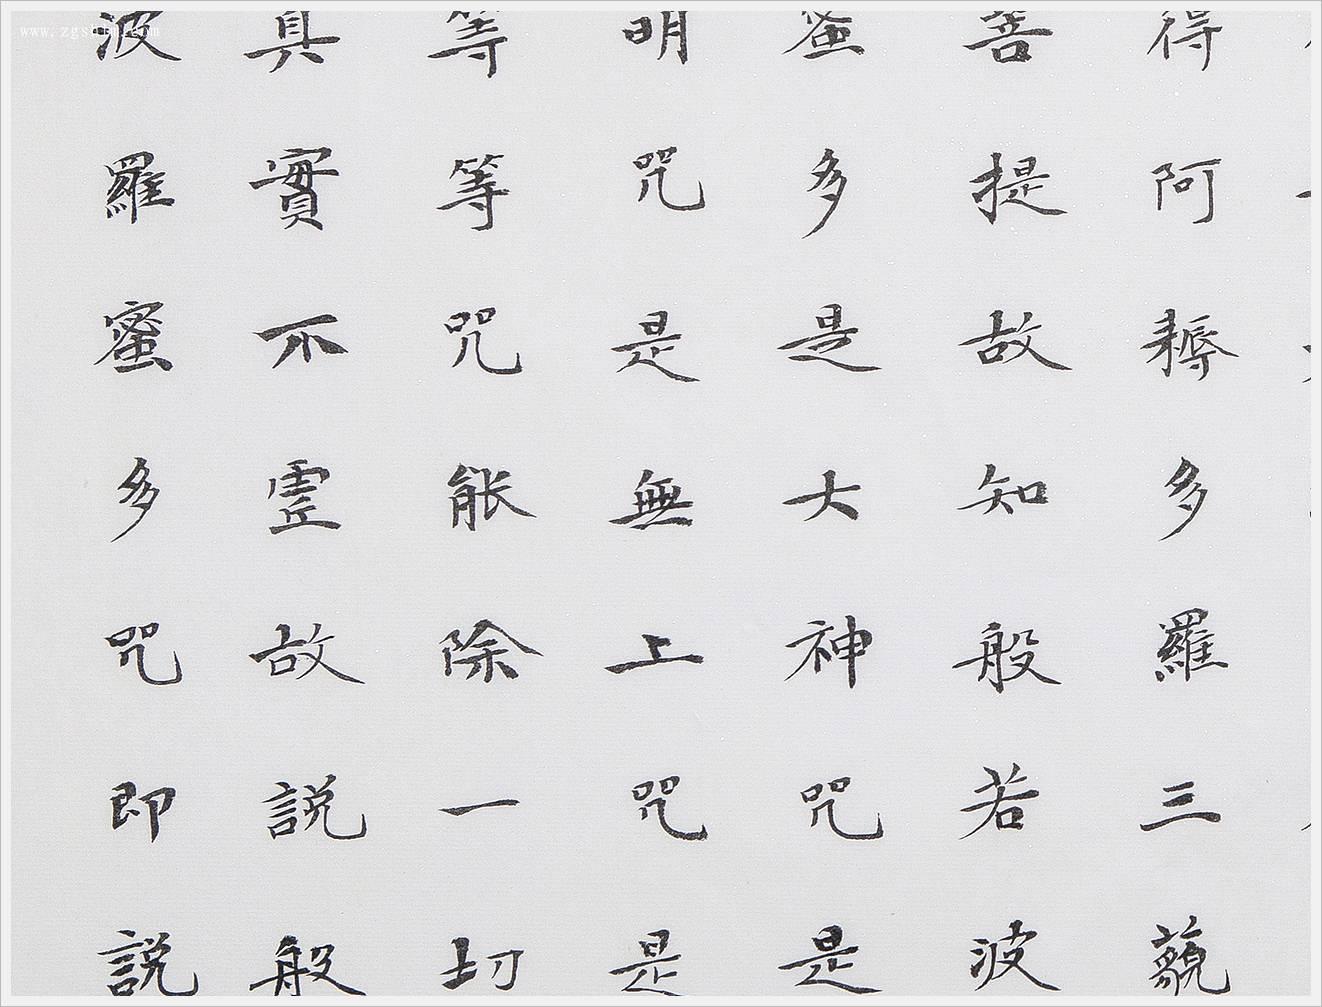 得阿耨多羅三藐
菩提故知般若波
蜜多是大神咒是
明咒是無上咒是
等等咒能除一切
真實不虛故說般
波羅蜜多咒即說